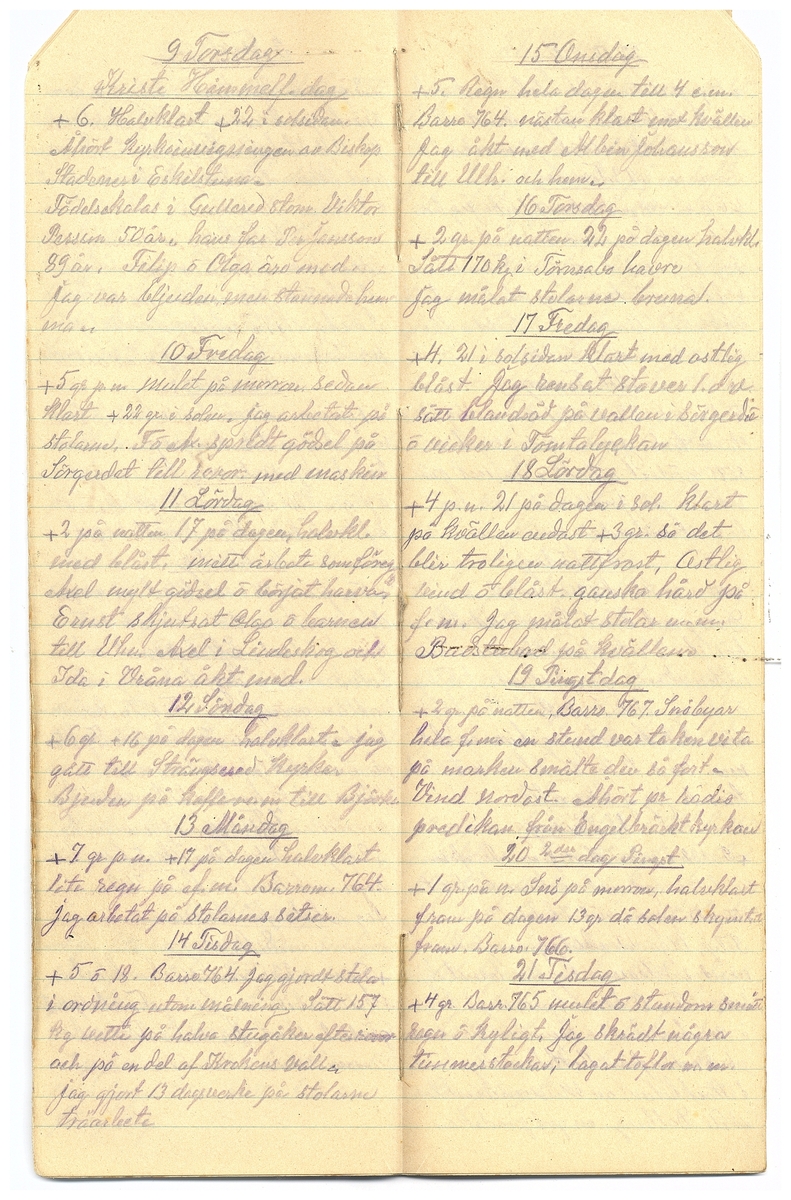 9 Torsdag
Kristi Himmelf. dag
+ 6. Halvklart +22 i solsidan.
Åhört kyrkoinvigningen av Biskop
i Eskilstuna
Födelsekalas i Gullered stom. Viktor
Persson 50 år, hans far Per Jonsson
89 år. Filip o Olga äro med.
Jag var bjuden men stannade hem
ma.
10 Fredag
+5 gr p.n. Mulet på morron sedan
klart +22 gr. i solen. jag arbetat på
stolarne. F o A. spridt gödsel på
Sörgerdet till rovor. med maskin
11 Lördag
+2 på natten 17 på dagen, halvkl.
med blåst. mitt arbete som föreg.
Axel mylt gödsel o börjat harva
Ernst skjutsat Olga o barnen
till Ulh. Axel i Lindeskog och
Ida i Vråna åkt med.
12 Söndag
+6 gr. +16 på dagen halvklart. jag
gått till Strängsered Kyrka
Bjuden på kaffe m.m till
13 Måndag
+7 gr p.n. +17 på dagen halvklart
lite regn på ef.m. Barrom. 764.
jag arbetat på stolarnes sitser.
14 Tisdag
+ 5 o 18. Barro 764. Jag gjordt stolar
i ordning utom målning. Sått 157
kg vete på halva stugåker efter
och på en del af Krokens vall.
jag gjort 13 dagsverke på stolarne
träarbete
15 Onsdag
+5. Regn hela dagen till 4 e.m.
Barro 764. nästan klart emot kvällen
Jag åkt med Albin Johansson
till Ulh. och hem.
16 Torsdag
+ 2 gr. på natten. 22 på dagen halvkl.
Sått 170 kg i Törnsabo havre
Jag målat stolarne bruna.
17 Fredag
+4. 21 i solsidan klart med ostlig
blåst. Jag rensat stover
sått blandsäd på vallen i Sörgerdet
o vicker i Tomtalyckan
18 Lördag
+4 p.n. 21 på dagen i sol. klart
på kvällen endast +3 gr. så det
blir troligen nattfrost, Ostlig
vind o blåst, ganska hård på
f.m. Jag målat stolar m.m.
Badstubad på kvällen
19 Pingstdag
+2 gr på natten, Barro. 767. Snöbyar
hela f.m. en stund var taken vita
på marken smälte den så fort.
Vind nordost. Åhört pr radio
predikan från Engelbräcktkyrkan
20 2dra dag Pingst
+1 gr. på n. Snö på morron, halvklart
fram på dagen 13 gr då solen skymta
fram. Barro. 766.
21 Tisdag
+4 gr. Barr. 765 mulet o stundom smått
regn o kyligt. Jag skrädt några
timmerstockar, lagat toflor m.m.